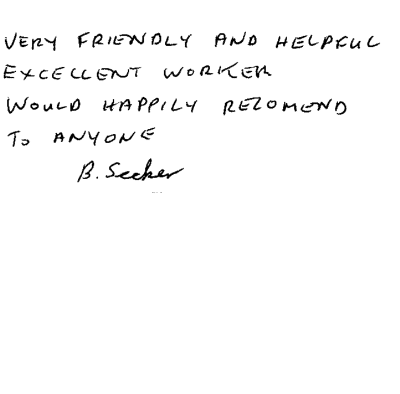 VERY FRIENDLY AND HELPFUL
EXCELLENT WORKER
WOULD HAPPILY RECOMEND
TO ANYONE
B. Secker